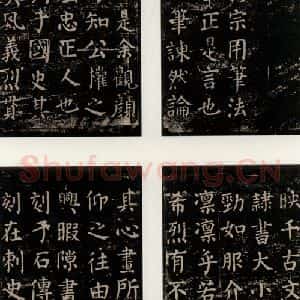 宗用筆法
正是言也
筆諫然論
是余觀顏
知公懽之
忠正人也
國史
風義烈貫
映千古文
隸書大小
勁如服介
凜凜乎若
希烈有不
其心畫所
仰之往由
興暇隙書
刻于石傳
刻在刺史
Shufawang.CN